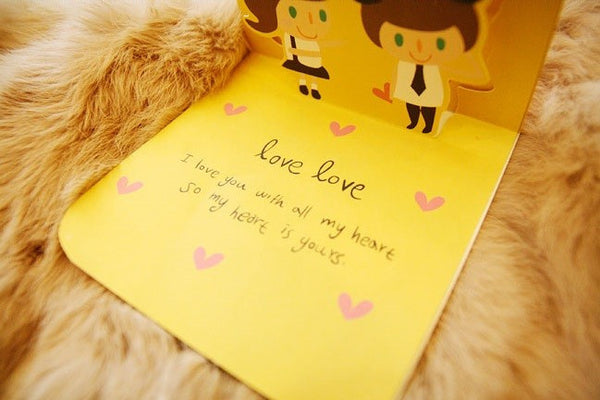 love love
I love you with all my heart
so my heart is yours.